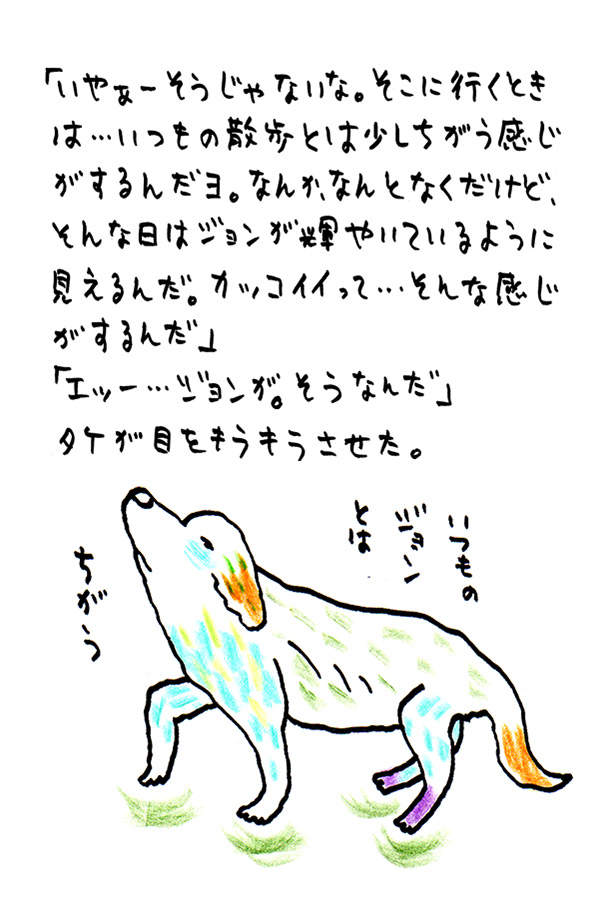 「いやぁーそうじゃないな。そこに行くとき
は…いつもの散歩とは少しちがう感じ
がするんだヨ。なんか、なんとなくだけど、
そんな日はジョンが輝やいているように
見えるんだ。カッコイイって…そんな感じ
がするんだ」
「エッー…ジョンが。そうなんだ」
タケが目をもうもうさせた。
いつもの
ジョン
とは
ちがう